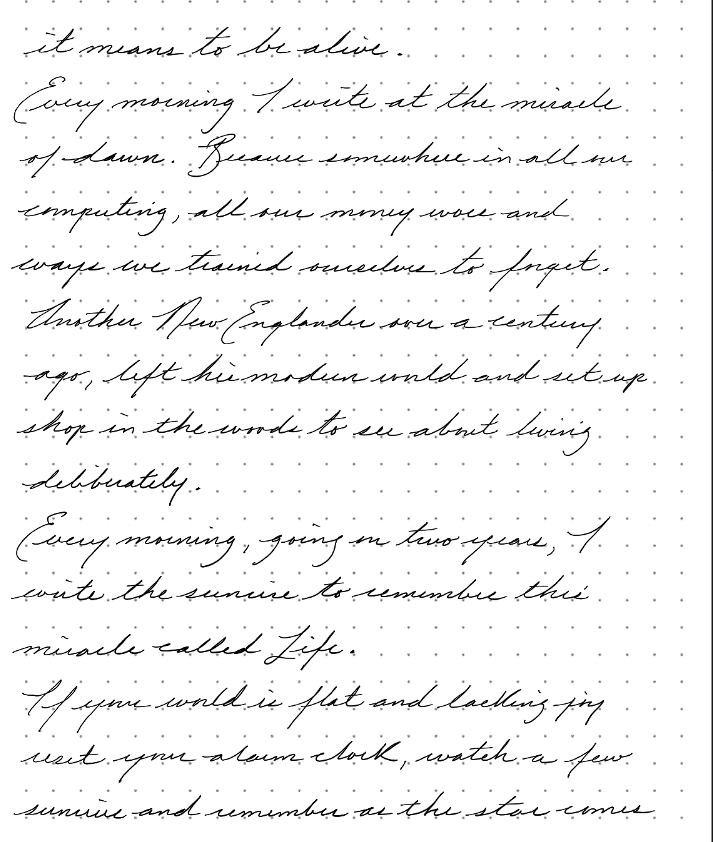 it means to be alive.
Every morning I write at the miracle
of dawn. Because somewhere in all our
computing, all our money woes and
ways we trained ourselves to forget.
Another New Englander over a century
ago, left his modern world and set up
shop in the woods to see about living
deliberately.
Every morning, going on two years, I
write the sunrise to remember this
miracle called Life.
If your world is flat and lacking joy
reset your alarm clock, watch a few
sunrise and remember as the star comes